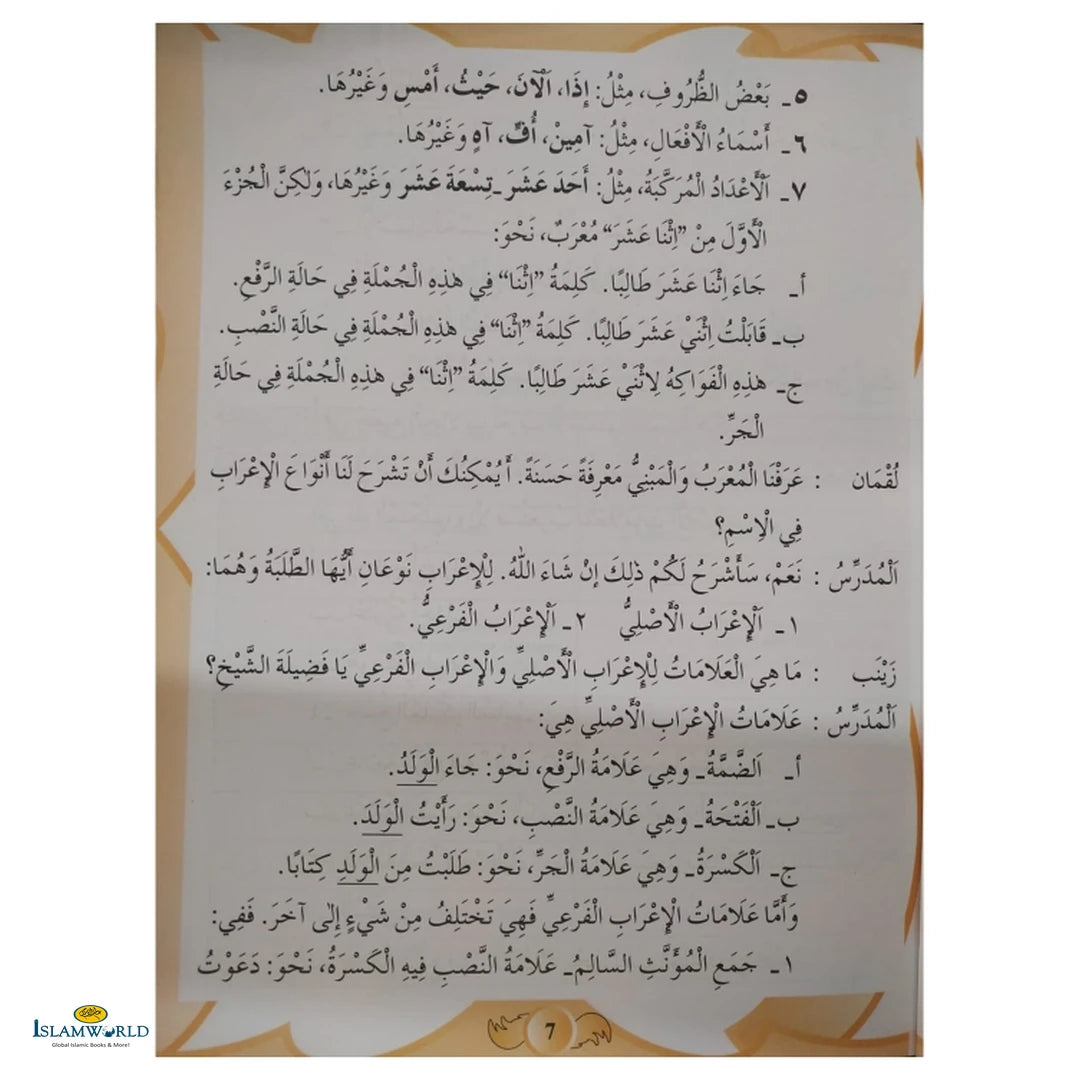 ٥ـ بَعْضُ الظُّرُوفِ، مِثْلُ: إِذَا، اَلْآنَ، حَيْثُ، أَمْسِ وَغَيْرُهَا.
٦ـ أَسْمَاءُ الْأَفْعَالِ، مِثْلُ: آمِينْ، أُفٌّ، آهٍ وَغَيْرُهَا.
٧ـ اَلْأَعْدَادُ الْمُرَكَّبَةُ، مِثْلُ: أَحَدَ عَشَرَ ـ تِسْعَةَ عَشَرَ وَغَيْرُهَا، وَلٰكِنَّ الْجُزْءَ
الْأَوَّلَ مِنْ ”اِثْنَا عَشَرَ“ مُعْرَبٌ، نَحْوَ:
أـ جَاءَ اِثْنَا عَشَرَ طَالِبًا. كَلِمَةُ ”اِثْنَا“ فِي هٰذِهِ الْجُمْلَةِ فِي حَالَةِ الرَّفْعِ.
ب ـ قَابَلْتُ اِثْنَيْ عَشَرَ طَالِبًا. كَلِمَةُ ”اِثْنَا“ فِي هٰذِهِ الْجُمْلَةِ فِي حَالَةِ النَّصْبِ.
ج ـ هٰذِهِ الْفَوَاكِهُ لِاثْنَيْ عَشَرَ طَالِبًا. كَلِمَةُ ”اِثْنَا“ فِي هٰذِهِ الْجُمْلَةِ فِي حَالَةِ
الْجَرِّ.
لُقْمَان : عَرَفْنَا الْمُعْرَبُ وَالْمَبْنِيُّ مَعْرِفَةً حَسَنَةً. أَيُمْكِنُكَ أَنْ تَشْرَحَ لَنَا أَنْوَاعَ الْإِعْرَابِ
فِي الْاِسْمِ؟
اَلْمُدَرِّسُ : نَعَمْ، سَأَشْرَحُ لَكُمْ ذٰلِكَ إِنْ شَاءَ اللّٰهُ. لِلْإِعْرَابِ نَوْعَانِ أَيُّهَا الطَّلَبَةُ وَهُمَا:
١ـ اَلْإِعْرَابُ الْأَصْلِيُّ ٢ـ اَلْإِعْرَابُ الْفَرْعِيُّ.
زَيْنَب : مَا هِيَ الْعَلَامَاتُ لِلْإِعْرَابِ الْأَصْلِيِّ وَالْإِعْرَابِ الْفَرْعِيِّ يَا فَضِيلَةَ الشَّيْخِ؟
اَلْمُدَرِّسُ : عَلَامَاتُ الْإِعْرَابِ الْأَصْلِيِّ هِيَ:
أـ اَلضَّمَّةُ ـ وَهِيَ عَلَامَةُ الرَّفْعِ، نَحْوَ: جَاءَ الْوَلَدُ.
ب ـ اَلْفَتْحَةُ ـ وَهِيَ عَلَامَةُ النَّصْبِ، نَحْوَ: رَأَيْتُ الْوَلَدَ.
ج ـ اَلْكَسْرَةُ ـ وَهِيَ عَلَامَةُ الْجَرِّ، نَحْوَ: طَلَبْتُ مِنَ الْوَلَدِ كِتَابًا.
وَأَمَّا عَلَامَاتُ الْإِعْرَابِ الْفَرْعِيِّ فَهِيَ تَخْتَلِفُ مِنْ شَيْءٍ إِلٰى آخَرَ. فَفِي:
١ـ جَمَعِ الْمُؤَنَّثِ السَّالِمُ ـ عَلَامَةُ النَّصْبِ فِيهِ الْكَسْرَةُ، نَحْوَ: دَعَوْتُ
7
ISLAMWORLD
Global Islamic Books & More!